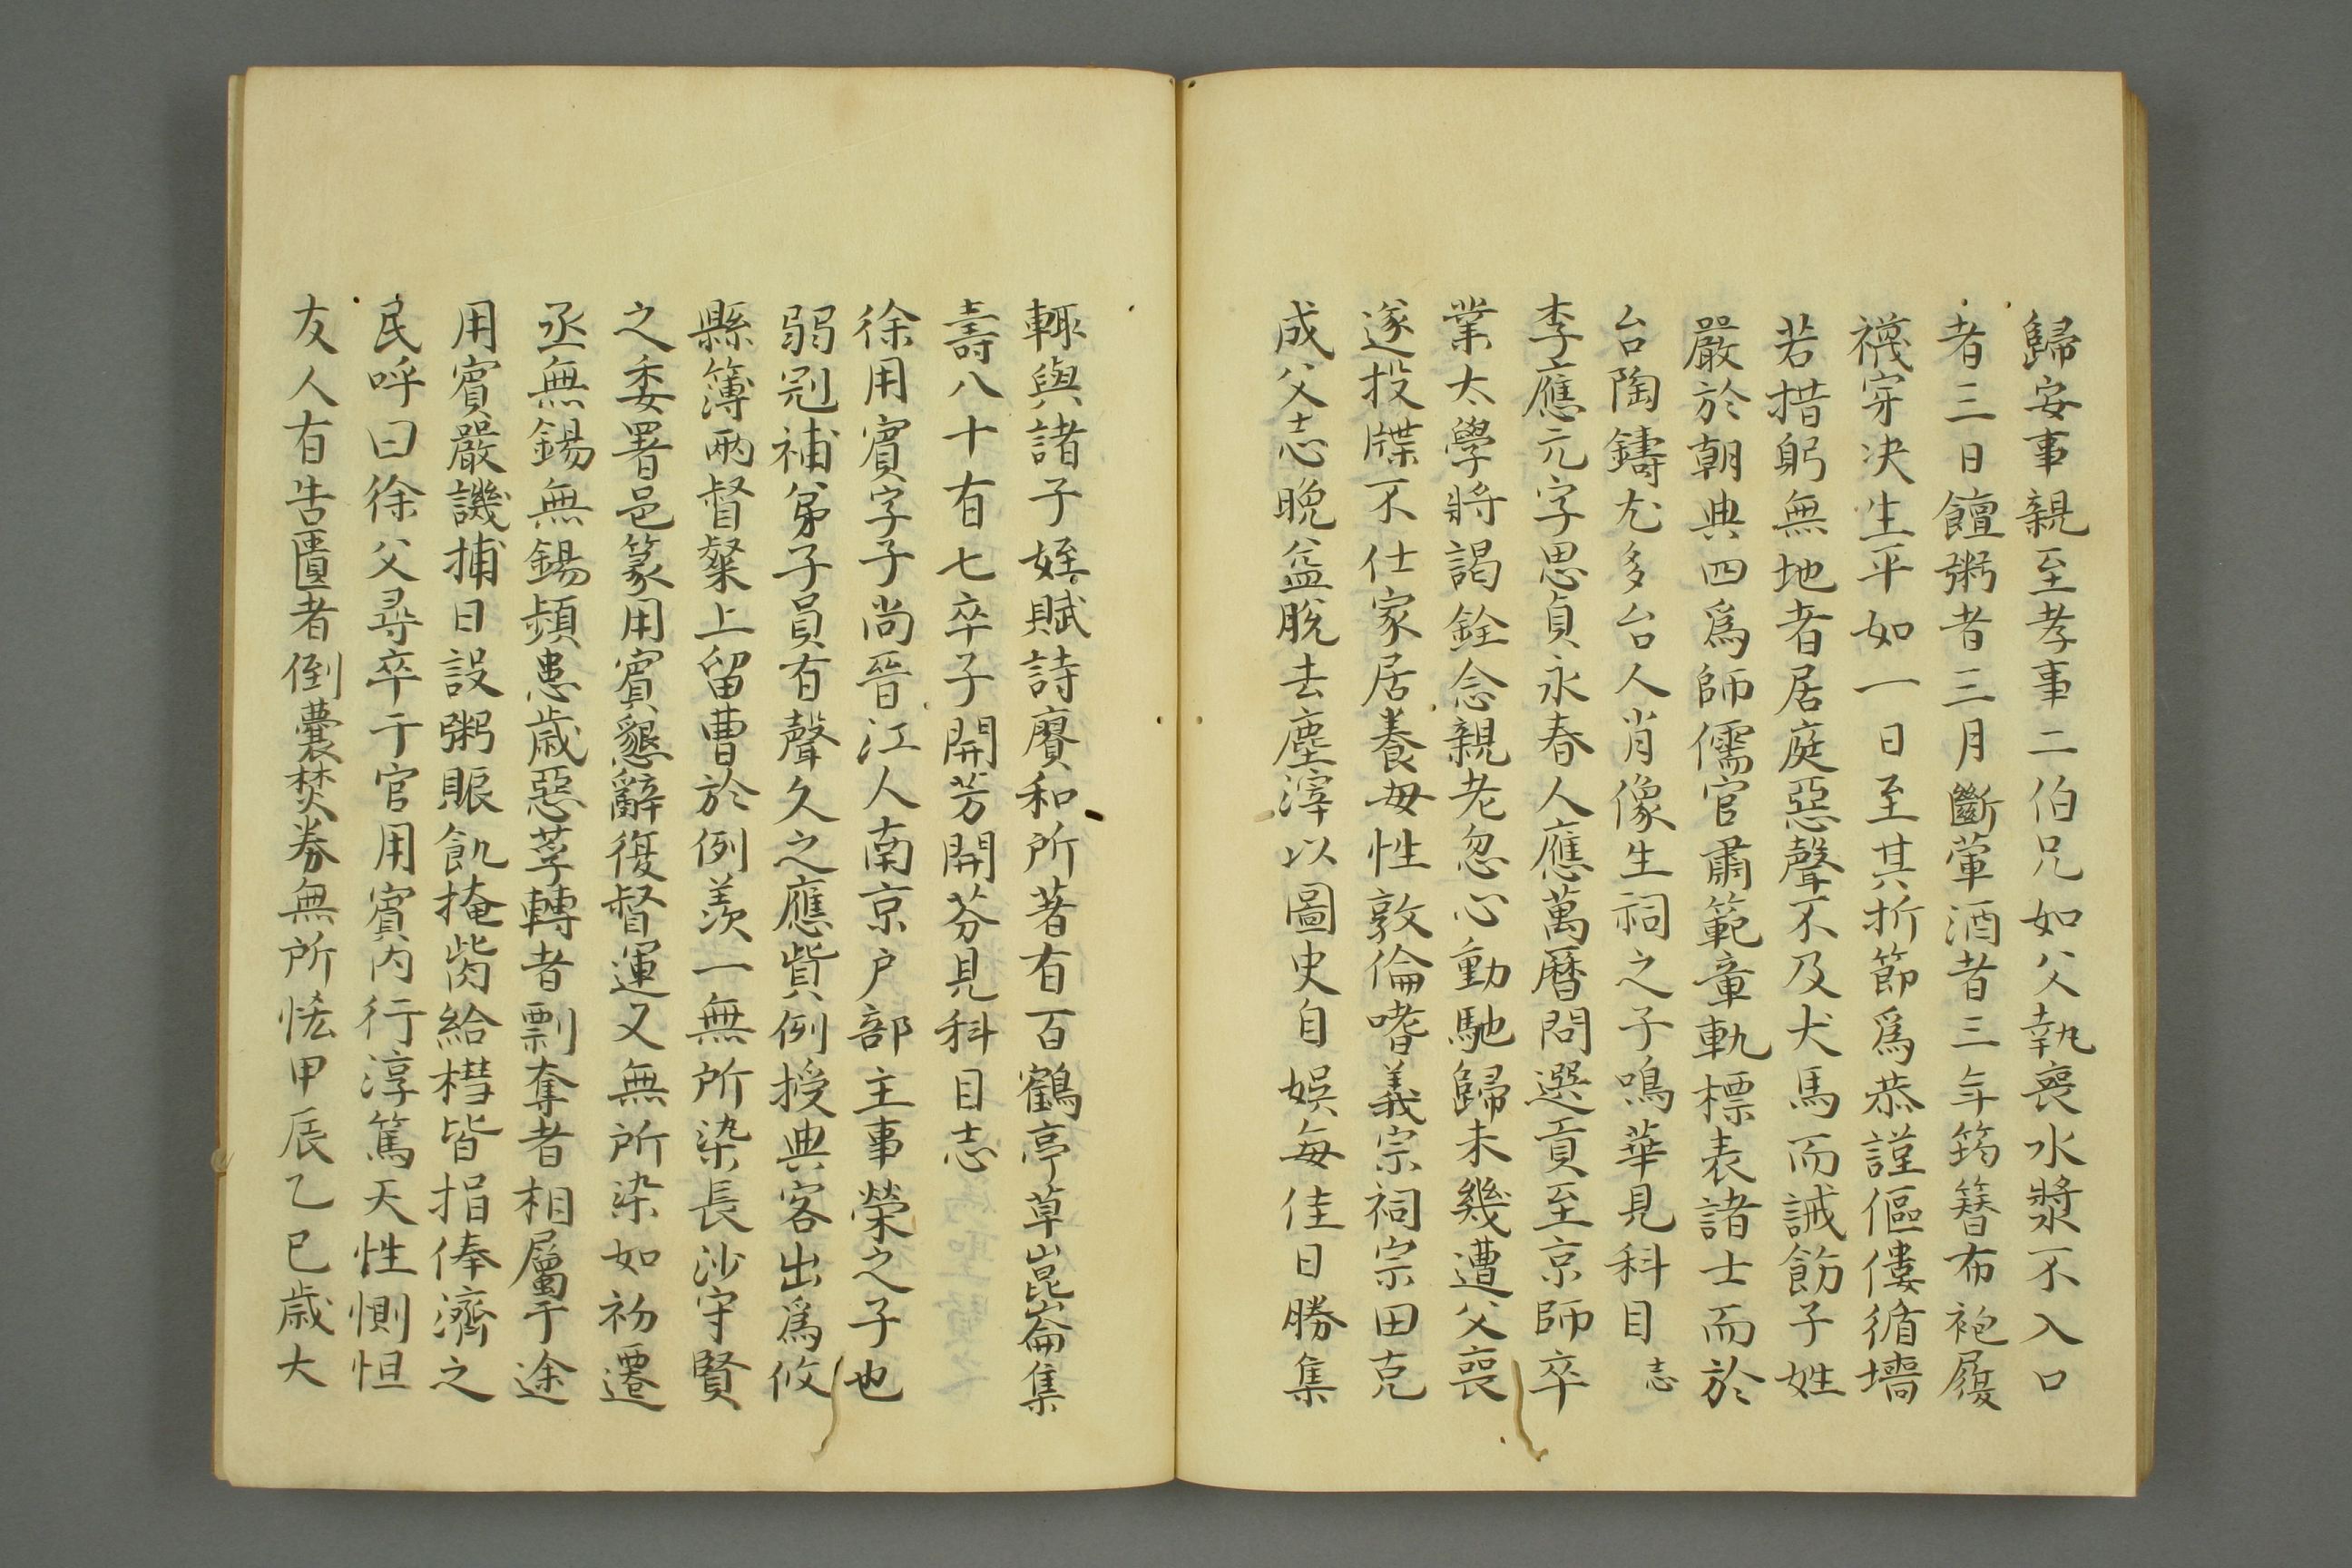 歸安事親至孝事二伯兄如父執喪水漿不入口
者三日饘粥者三月斷葷酒者三年筠簪布袍履
襪穿决生平如一日至其折節爲恭謹傴僂循墻
若措躬無地者居庭惡聲不及犬馬而誡飭子姓
嚴於朝典四爲師儒官肅範章軌標表諸士而於
台陶鑄尤多台人肖像生祠之子鳴華見科目志
李應元字思貞永春人應萬曆問選貢至京師卒
業太學將謁銓念親老忽心動馳歸未幾遭父喪
遂投牒不仕家居養母性敦倫嗜義宗祠宗田克
成父志晩益脫去塵滓以圖史自娛每佳日勝集
輒與諸子姪賦詩賡和所著有百鶴亭草崑崙集
壽八十有七卒子開芳開芬見科目志
徐用賓字子尚晉江人南京户部主事榮之子也
弱冠補弟子員有聲久之應貲例授典客出爲攸
縣簿兩督粲上留曹於例羨一無所染長沙守賢
之委署邑篆用賓懇辭復督運又無所染如初遷
丞無錫無錫頻患歲惡莩轉者剽奪者相屬于途
用賓嚴譏捕日設粥賑飢掩胔給槥皆捐俸濟之
民呼曰徐父尋卒于官用賓内行淳篤天性惻怛
友人有告匱者倒囊焚券無所恡甲辰乙巳歲大